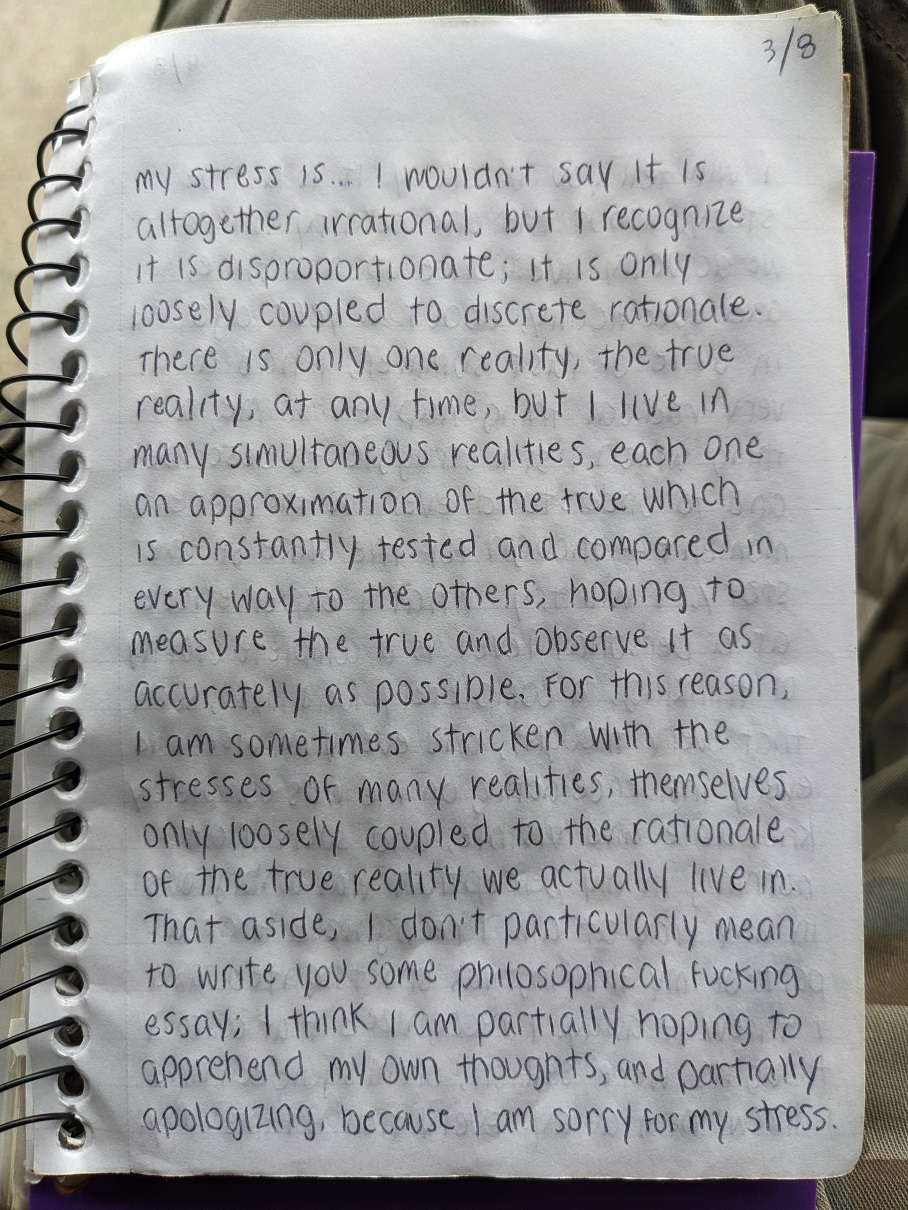 3/8
my stress is... I wouldn't say it is
altogether irrational, but I recognize
it is disproportionate; it is only
loosely coupled to discrete rationale.
There is only one reality, the true
reality, at any time, but I live in
many simultaneous realities, each one
an approximation of the true which
is constantly tested and compared in
every way to the others, hoping to
measure the true and observe it as
accurately as possible. For this reason,
I am sometimes stricken with the
stresses of many realities, themselves
only loosely coupled to the rationale
of the true reality we actually live in.
That aside, I don't particularly mean
to write you some philosophical fucking
essay; I think I am partially hoping to
apprehend my own thoughts, and partially
apologizing, because I am sorry for my stress.